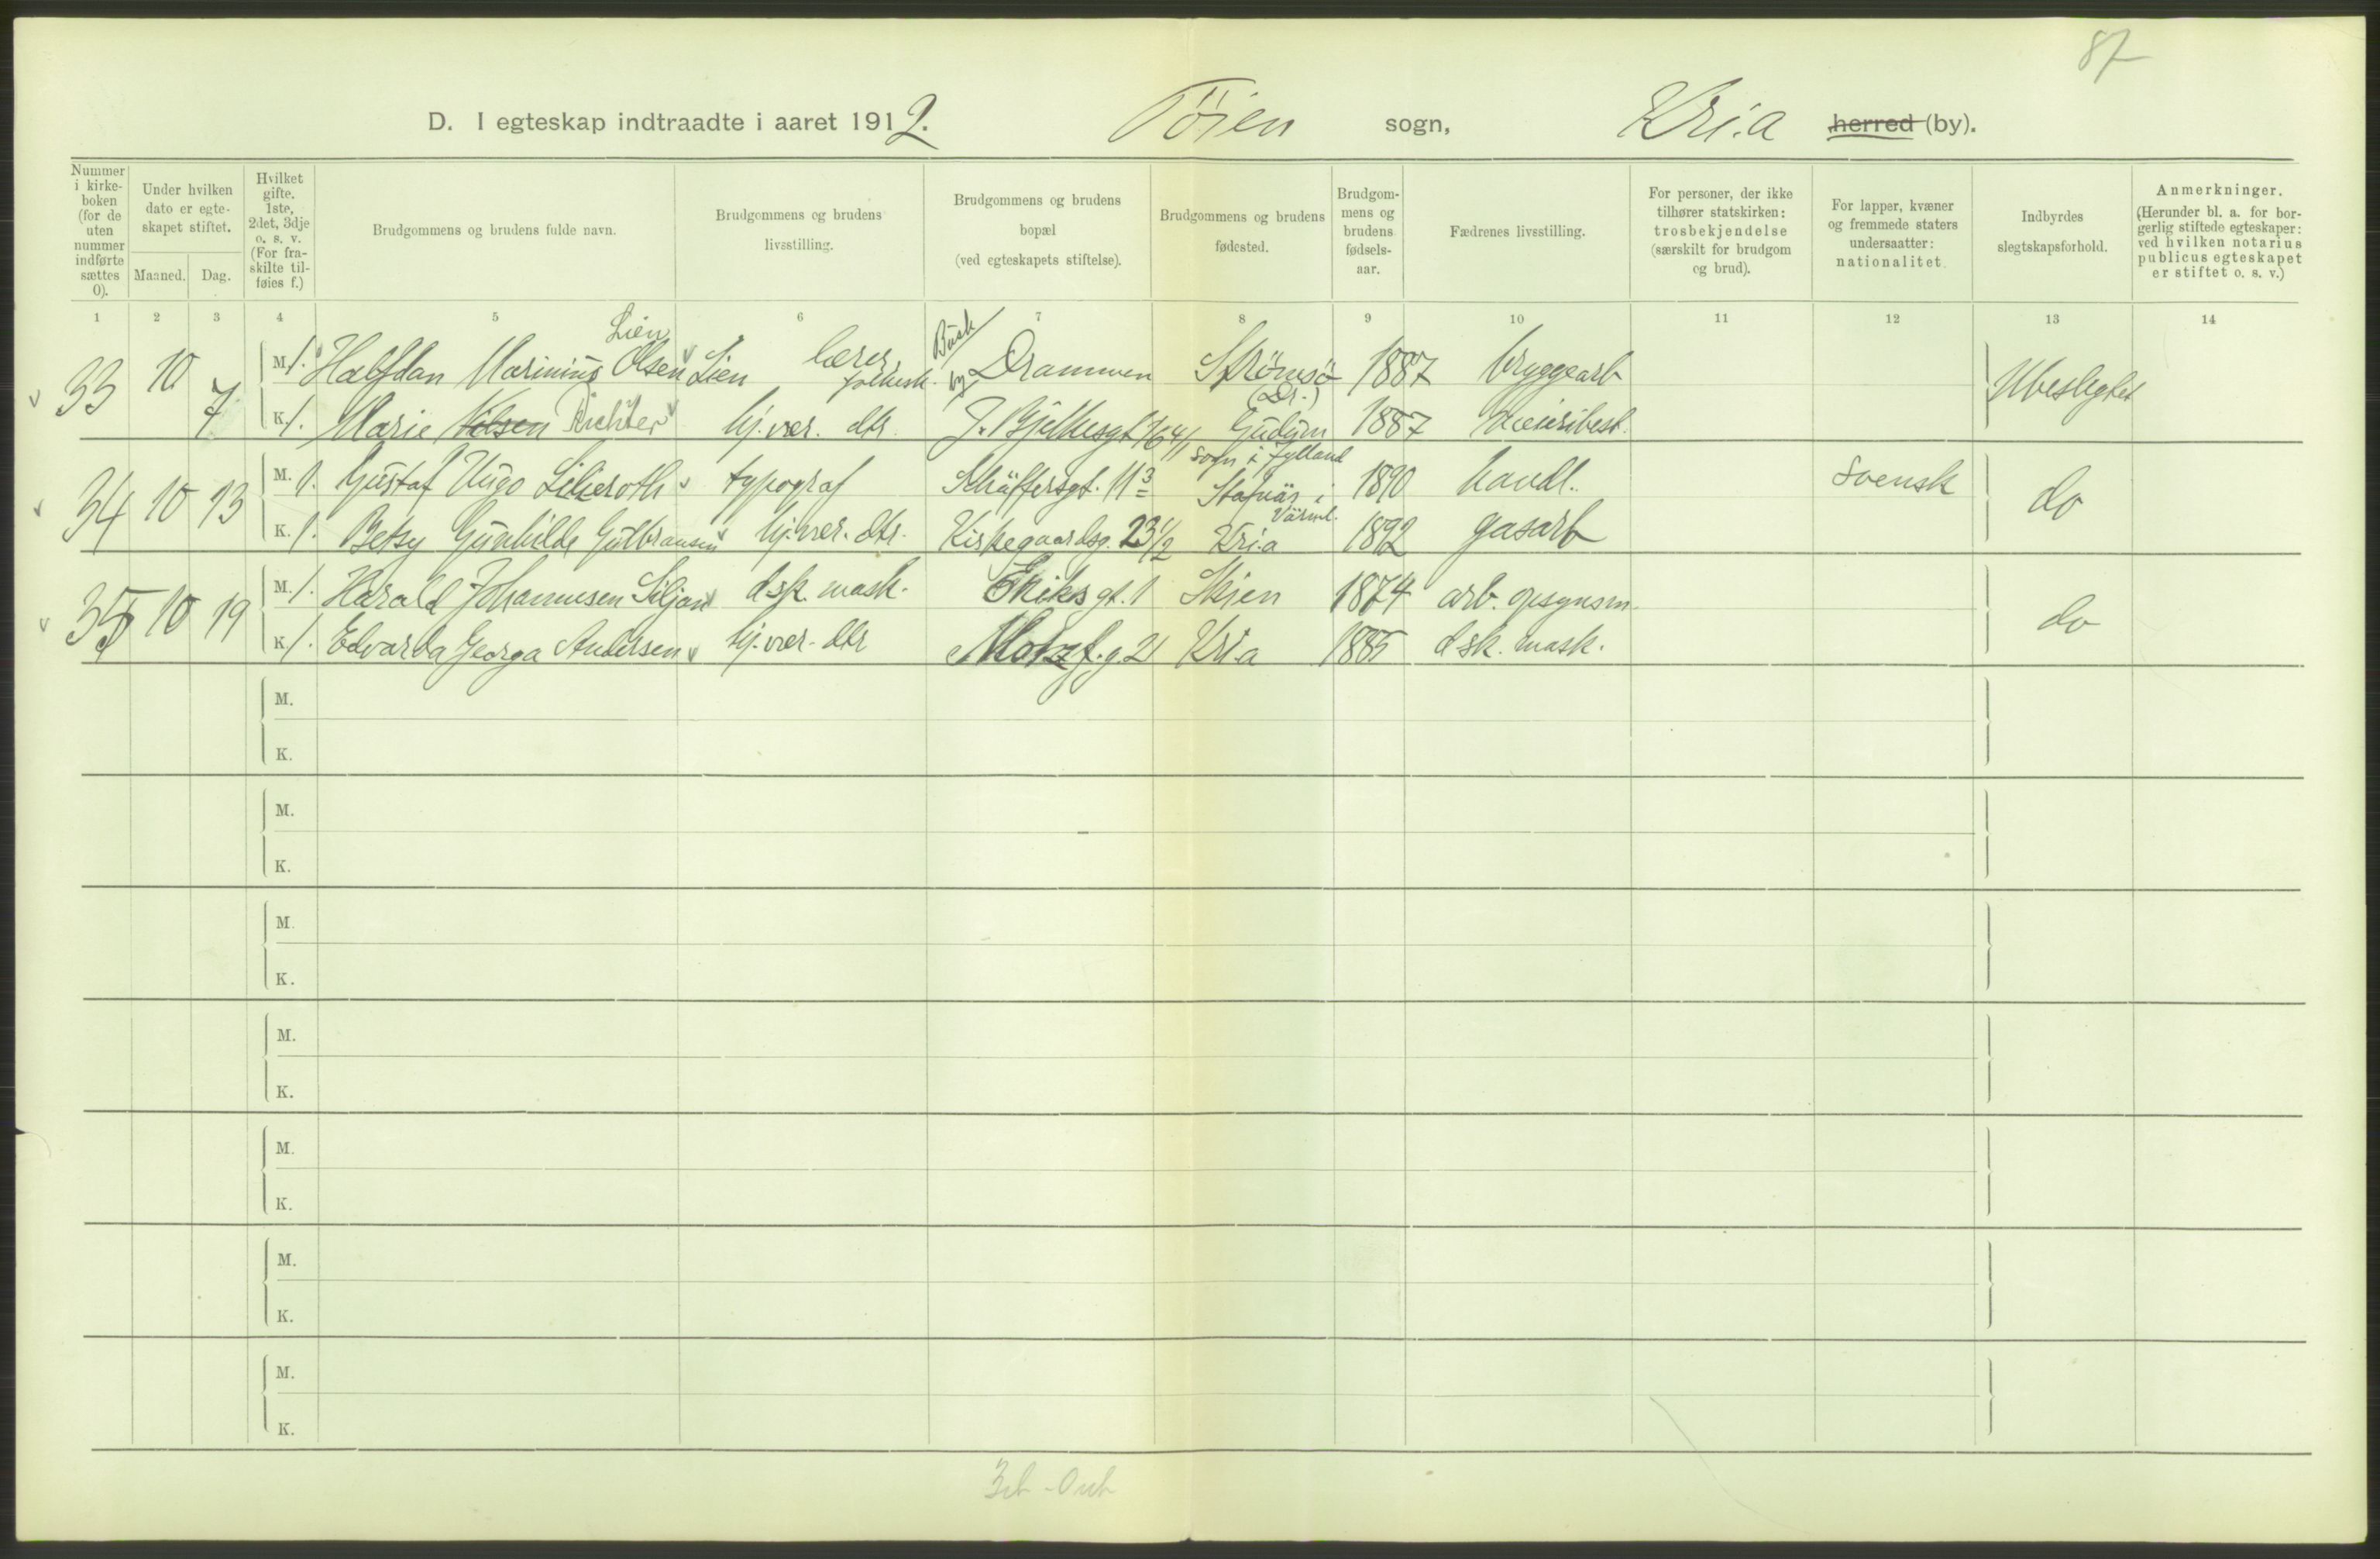 87
D. I egteskap indtraadte i aaret 1912. Töien sogn, Kri.a herred (by).
Nummer i kirke-boken (for de uten nummer indførte sættes 0).
Under hvilken dato er egte-skapet stiftet.
Maaned. Dag.
Hvilket gifte. 1ste, 2det, 3dje o. s. v. (For fra-skilte til-føies f.)
Brudgommens og brudens fulde navn.
Brudgommens og brudens livsstilling.
Brudgommens og brudens bopæl (ved egteskapets stiftelse).
Brudgommens og brudens fødested.
Brudgom-mens og brudens fødsels-aar.
Fædrenes livsstilling.
For personer, der ikke tilhører statskirken: trosbekjendelse (særskilt for brudgom og brud).
For lapper, kvæner og fremmede staters undersaatter: nationalitet.
Indbyrdes slegtskapsforhold.
Anmerkninger. (Herunder bl. a. for bor-gerlig stiftede egteskaper: ved hvilken notarius publicus egteskapet er stiftet o. s. v.)
1 2 3 4 5 6 7 8 9 10 11 12 13 14
33 10 7 M. 1. Halfdan Marinius Olsen Lien Lien lærer folkesk. Busk by Drammen Strömsö (Dr.) 1887 bryggearb Ubeslegtet
K. 1. Marie Nilsen Richter hj.vær. dtr. J. Bjelkesgt 76 4/1 Gudum sogn i Jylland 1887 meieribest.
34 10 13 M. 1. Gustaf Hugo Lilieroth typograf Schäffersgt. 11 3 Stafnäs i Värml. 1890 handl. svensk do
K. 1. Betsy Gunhilde Gulbransen hj.vær. dtr. Kirkegaardsg. 23 1/2 Kri.a 1892 gasarb
35 10 19 M. 1. Harald Johannesen Siljan dsk. mask. Eriksgt. 1 Skien 1874 arb. opsynsm. do
K. 1. Edvarda Georga Andersen hj.vær. dtr Motzf.g. 21 Kri.a 1885 dsk. mask.
M.
K.
M.
K.
M.
K.
M.
K.
M.
K.
M.
K.
M.
K.